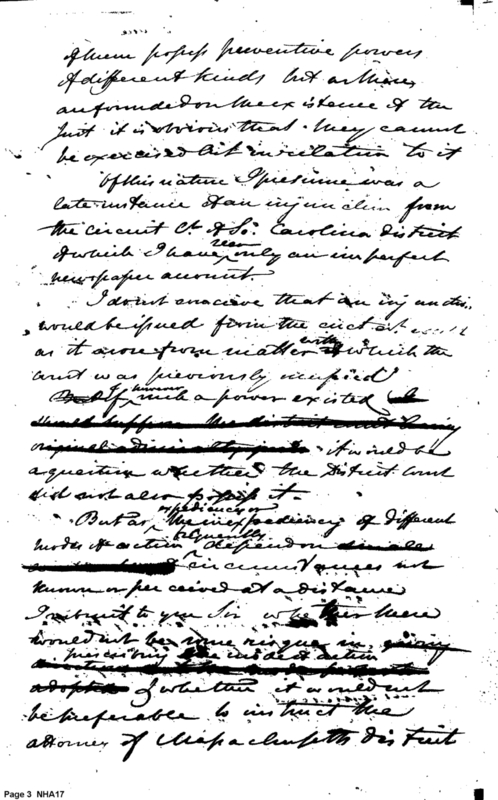 of them possess preventive powers
of different kinds but as these
are founded on the existence of the
suit it is obvious that they cannot
be exercised but in relation to it
Of this nature I presume was a
late instance of an injunction from
the circuit Ct. of So. Carolina district
of which I have seen only an imperfect
newspaper account.
I do not conceive that an injunction
would be issued from the
as it arose from matter with which the
court was previously
If however such a power existed
it would be
a question whether the District Court
did not also possess it.
But as the expediency or inexpediency of different
modes of action frequently depend on
circumstances not
known or perceived at a distance
I submit to you Sir whether there
would not be some risque in
prescribing the mode of action
& whether it would not
be preferable to instruct the
attorney of Massachusetts district
Page 3 NHA17